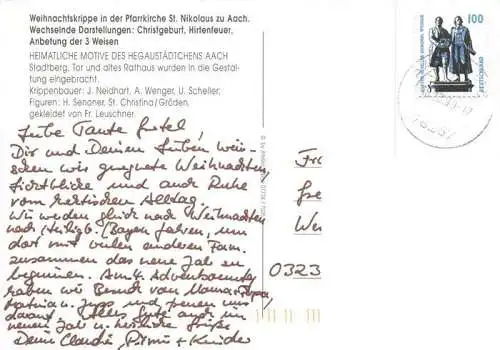 Weihnachtskrippe in der Pfarrkirche St. Nikolaus zu Aach.
Wechselnde Darstellungen: Christgeburt, Hirtenfeuer,
Anbetung der 3 Weisen
HEIMATLICHE MOTIVE DES HEGAUSTÄDTCHENS AACH
Stadtberg, Tor und altes Rathaus wurden in die Gestal-
tung eingebracht.
Krippenbauer: J. Neidhart, A. Wenger, U. Scheller;
Figuren: H. Senoner, St. Christina/Gröden,
gekleidet von Fr. Leuschner.
Liebe Tante Gretel,
Dir und Deinen Lieben wün-
schen wir gesegnete Weihnachten,
Lichtblicke und auch Ruhe
vom hektischen Alltag.
Wir werden gleich nach Weihnachten
nach Heilig / Bayern fahren, um
dort mit vielen anderen Fam.
zusammen das neue Jahr zu
beginnen. Am 4. Adventsonntag
haben wir Besuch von Mama + Papa,
und freuen uns
darauf. Alles Gute auch im
neuen Jahr u. herzliche Grüße
Deine Claudia, + Kinder
100
Fr
Ge
We
0323